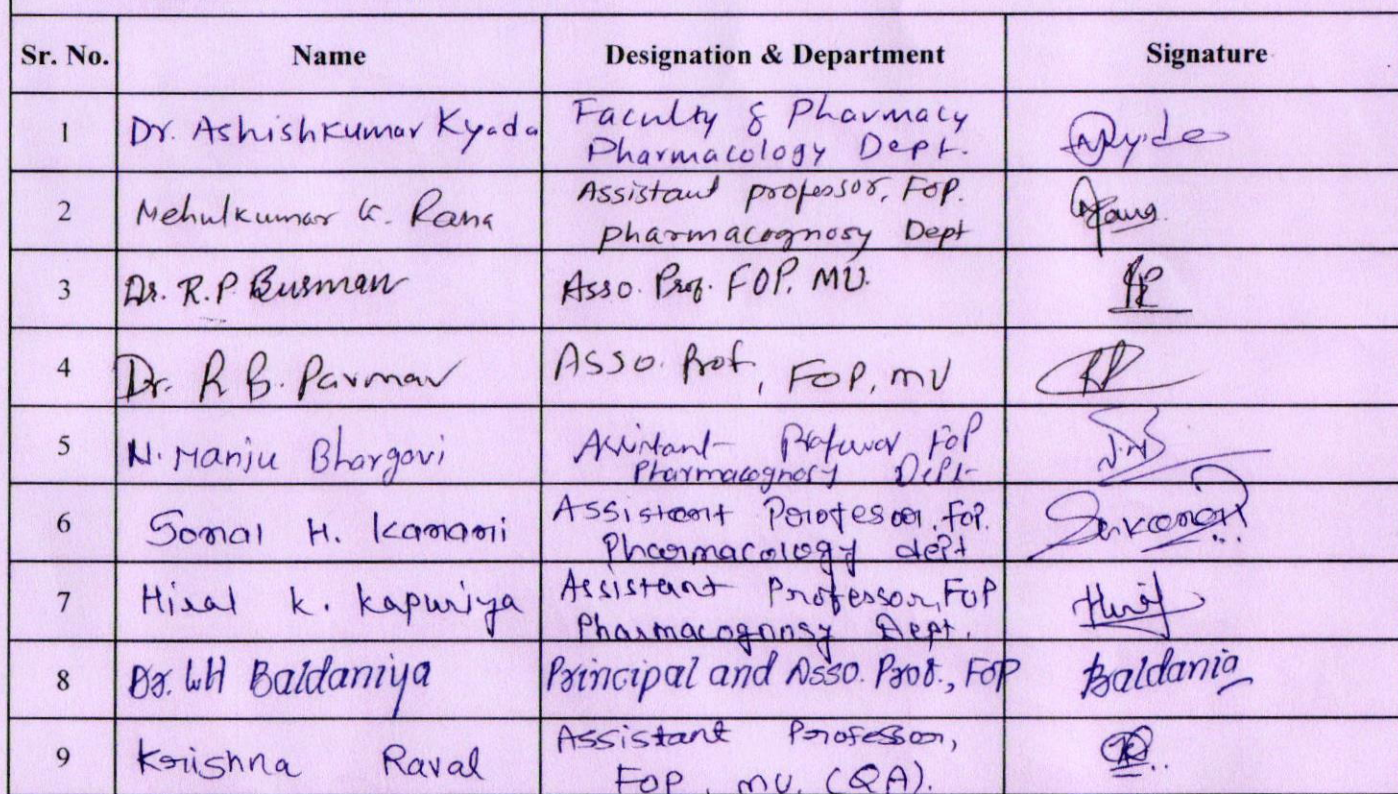 Sr. No. Name Designation & Department Signature
1 Dr. Ashishkumar Kyada Faculty & Pharmacy
Pharmacology Dept.
2 Mehulkumar K. Rana Assistant professor, FOP.
pharmacognosy Dept
3 Dr. R.P. Busman Asso. Prof. FOP. MU.
4 Dr. R B. Parmar Asso. Prof, FOP, MU
5 N. Manju Bhargavi Assistant Professor FOP
Pharmacognosy Dept
6 Sonal H. Kamani Assistant Professor, FOP.
Pharmacology dept
7 Hiral K. Kapuriya Assistant Professor, FOP
Pharmacognosy Dept.
8 Dr. LH Baldaniya Principal and Asso. Prof., FOP Baldania
9 Krishna Raval Assistant Professor,
FOP, MU, (QA).